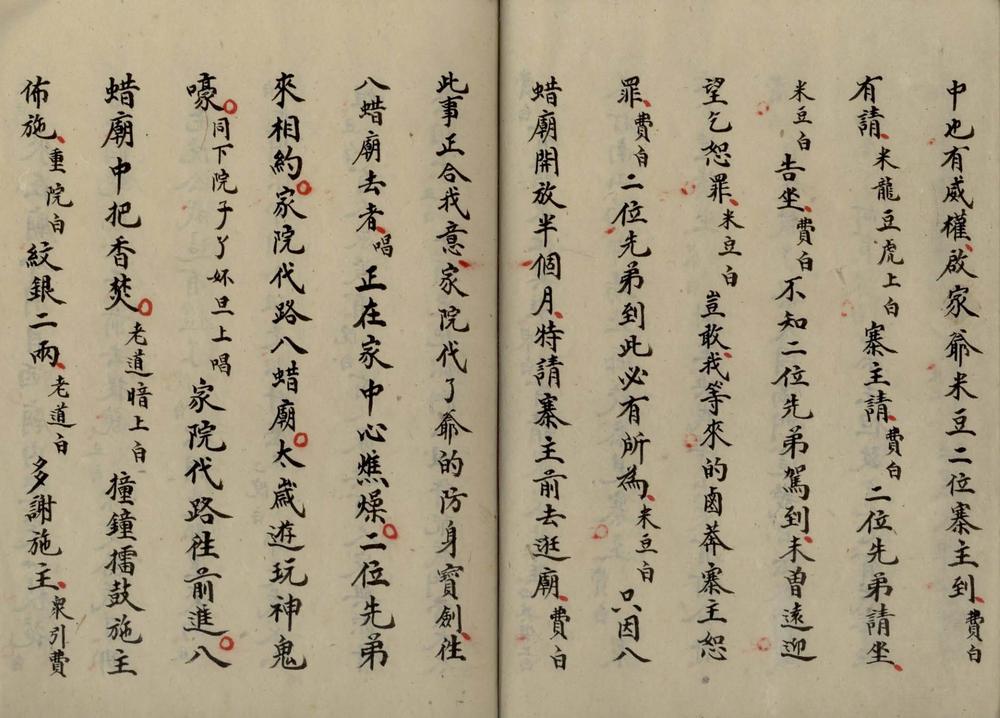 中也有威權、啟家爺米豆二位寨主到、費白
有請、米龍豆虎上白寨主請、費白二位先弟請坐、
米豆白告坐、費白不知二位先弟駕到、未曾遠迎
望乞恕罪、米豆白豈敢、我等來的鹵莽寨主恕
罪、費白二位先弟到此必有所為、米豆白只因八
蜡廟開放半個月、特請寨主前去逛廟、費白
此事正合我意、家院代了爺的防身寶劍、往
八蜡廟去者、唱正在家中心焦燥。二位先弟
來相約。家院代路八蜡廟。太歲遊玩神鬼
嚎。同下院子丫妚旦上唱家院代路往前進。八
蜡廟中把香焚。老道暗上白撞鐘擂鼓施主
佈施、重院白紋銀二兩、老道白多謝施主、衆引費